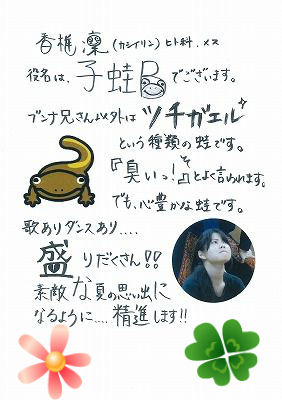 香椎 凜(カシイリン)ヒト科.メス
役名は、子蛙Bでございます。
ブンナ兄さん以外はツチガエル
という種類の蛙です。
『臭いっ!』とよく言われます。
でも、心豊かな蛙です。
歌ありダンスあり....
盛りだくさん!!
素敵な夏の思い出に
なるように....精進します!!